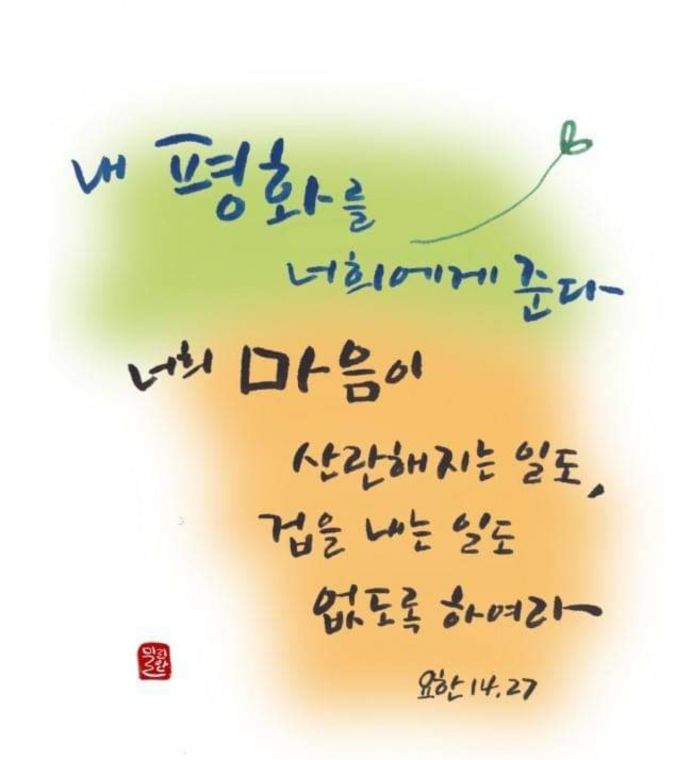 내 평화를
너희에게 준다
너희 마음이
산란해지는 일도,
겁을 내는 일도
없도록 하여라
요한 14.27